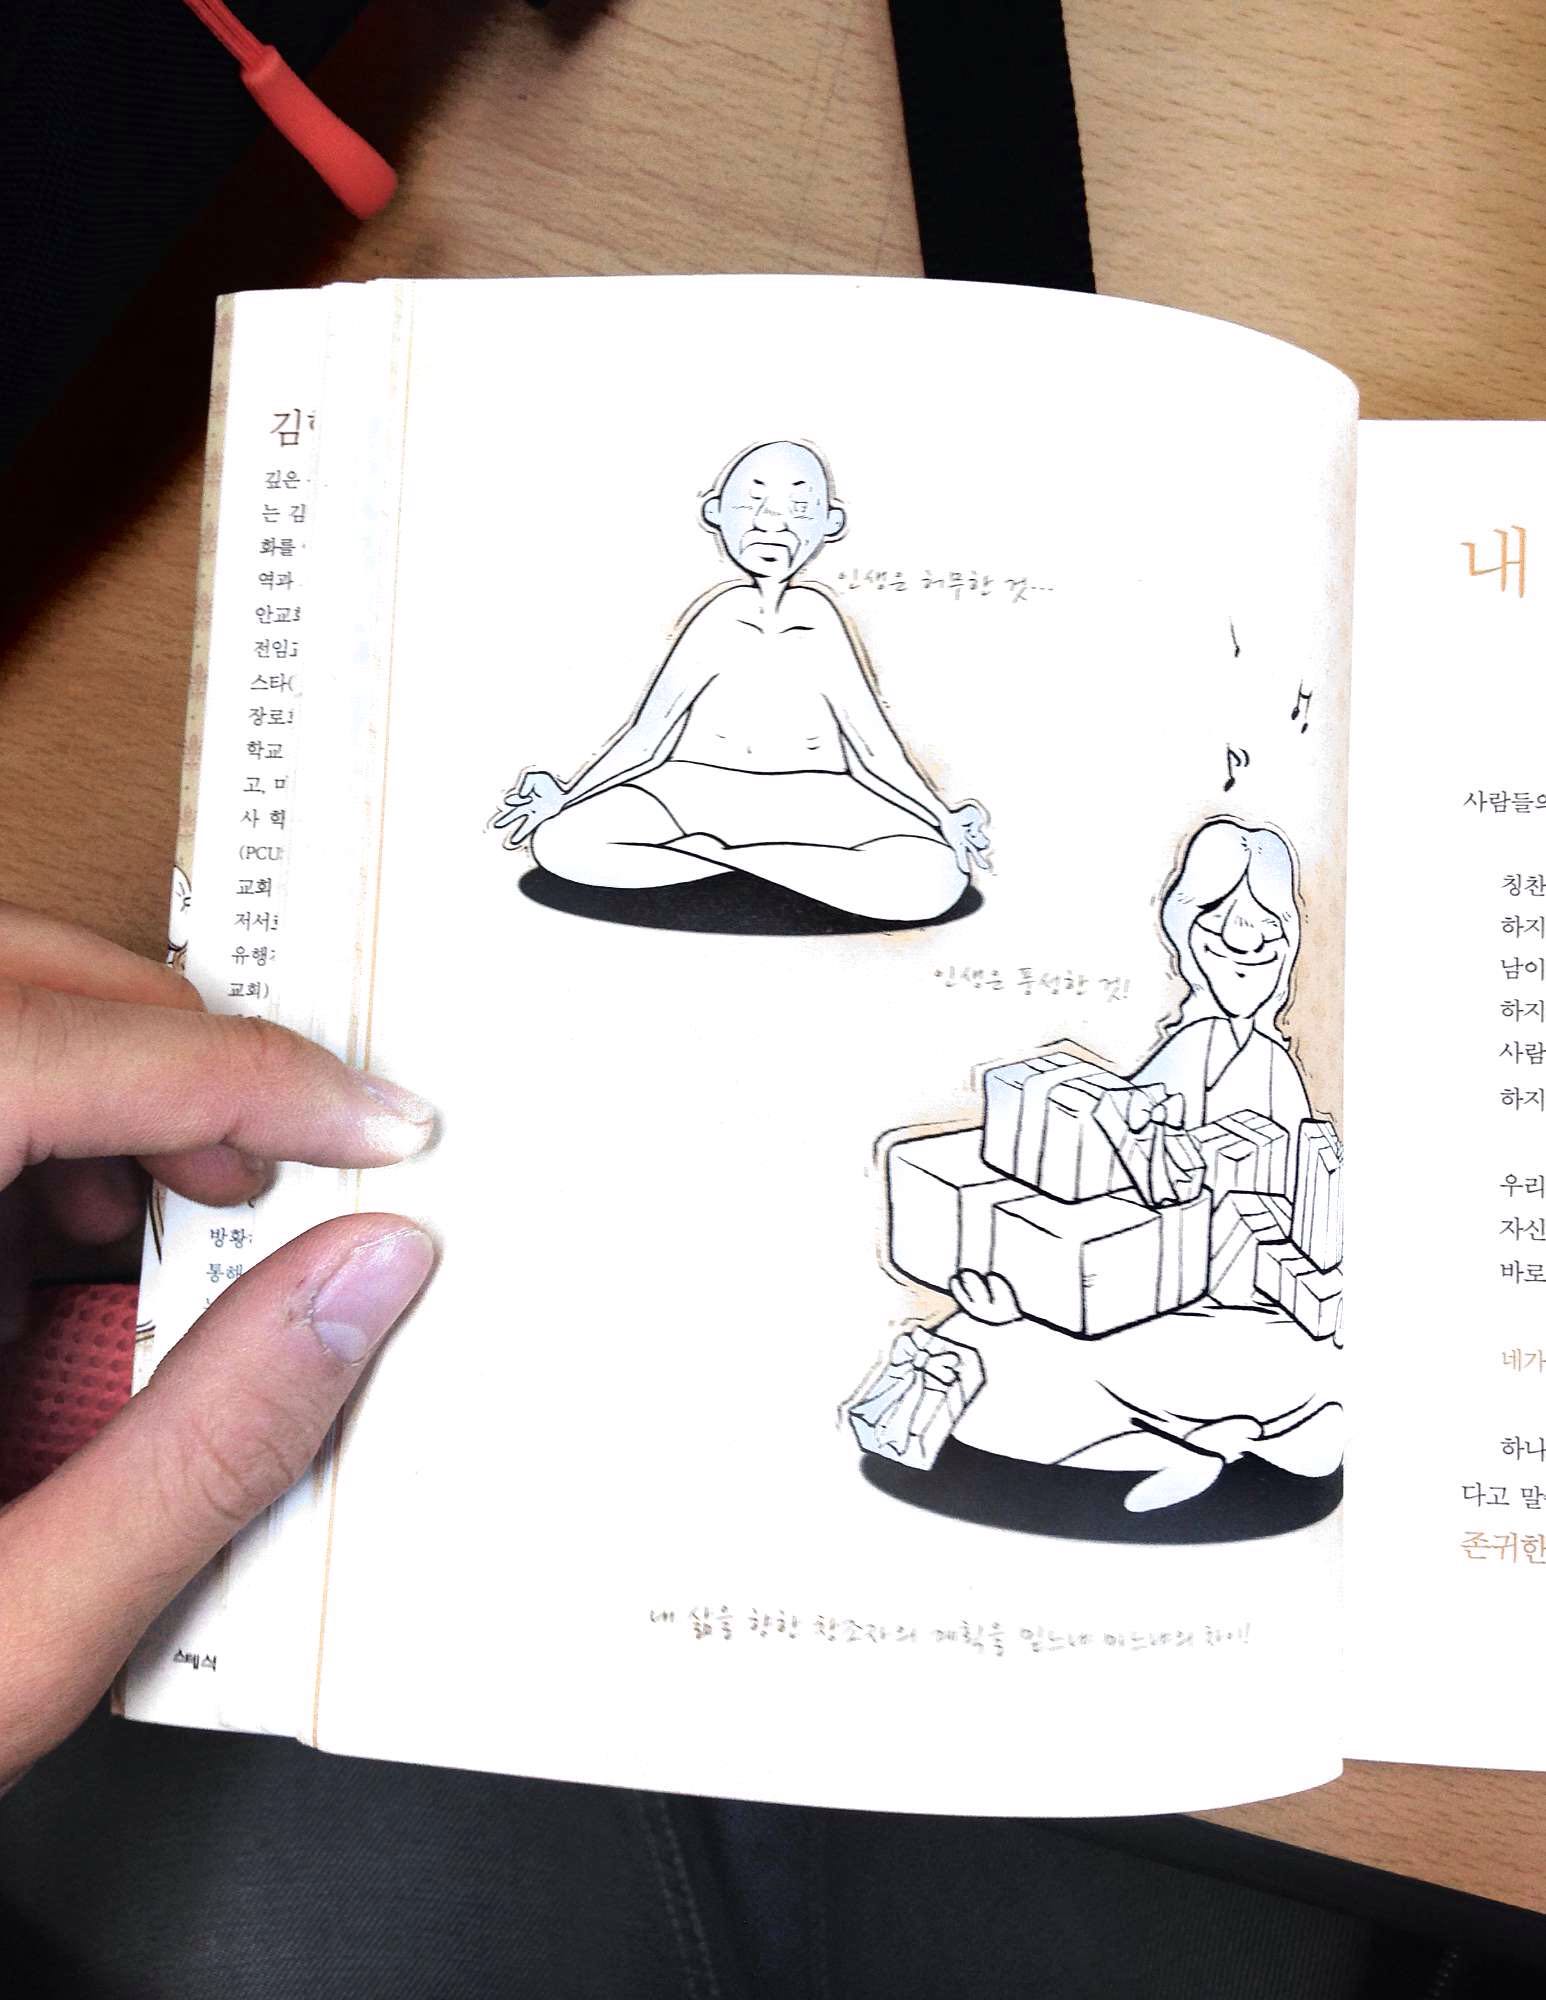 김
깊은
는 김
화를
역과
안교회
전임교
스타(
장로회
학교
고, 미
사 학
(PCUS
교회
저서로
유행가
교회)
방황
통해
스텝 석
인생은 허무한 것...
인생은 풍성한 것!
내 삶을 향한 창조자의 계획을 믿느냐 마느냐의 차이!
내
사람들의
칭찬
하지
남이
하지
사람
하지
우리
자신
바로
네가
하나
다고 말
존귀한